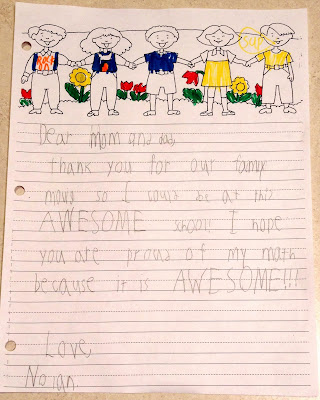 Dear Mom and dad,
thank you for our
so I could be at this
AWESOME school! I hope
you are proud of my math
because it is AWESOME!!!
Love,